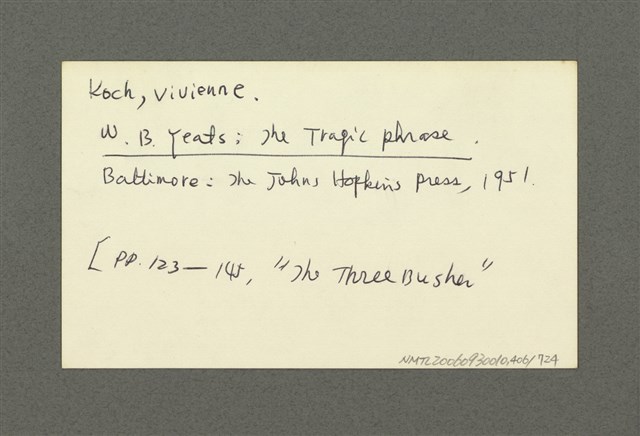 Koch, Vivienne.
W. B. Yeats: The Tragic phrase.
Baltimore: The Johns Hopkins Press, 1951.
[PP. 123—145, "The Three Bushes"
NMTL20060930010,406/724